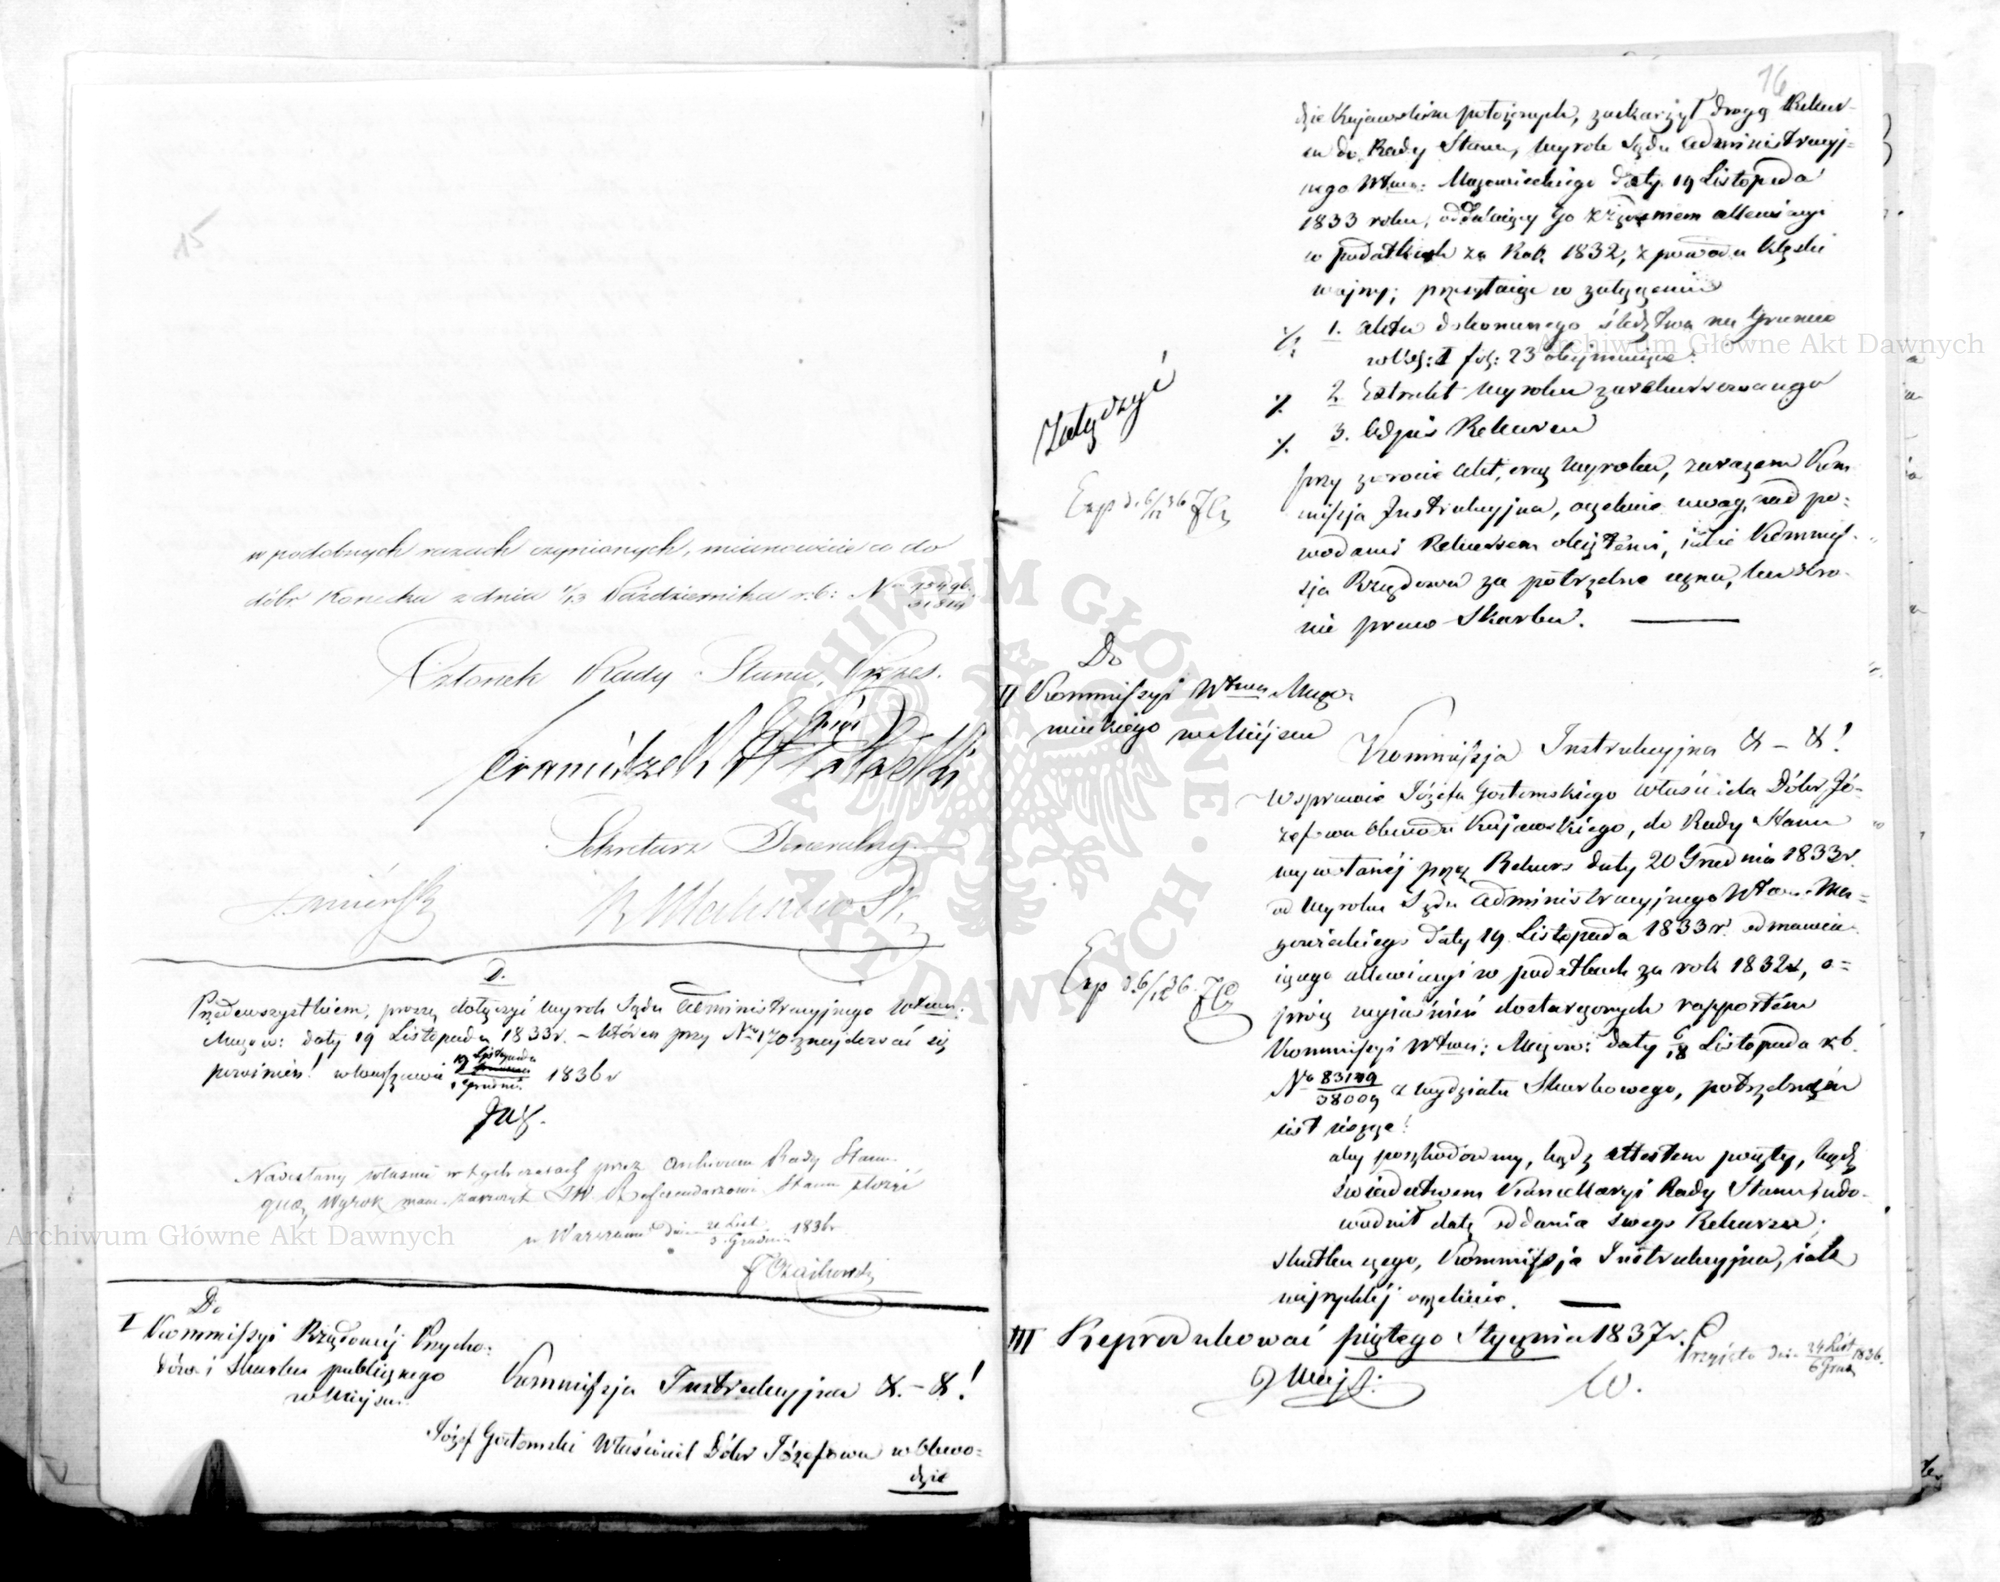 15
w podobnych razach czynionych, mianowicie co do
dóbr Konecka z dnia 1/13 Października r. b: No 95496/31819
Członek Rady Stanu, Prezes.
Franciszek Potocki
Sekretarz Generalny
D.
Przedewszystkiem, proszę dołączyć wyrok Sądu Administracyjnego Wtwa.
Mazow: daty 19 Listopada 1833 r. – któren przy No 170 znajdować się
powinien! w Warszawie 19 Listopada / 1 Grudnia 1836 r
Nadesłany właśnie w tych czasach przez Archiwum Rady Stanu
Wyrok mam zaszczyt JW. Referendarzowi Stanu
w Warszawie dnia 21 List. / 3 Grudnia 1836 r.
Do
I Kommissyi Rządowéj Przycho-
dów i Skarbu publicznego
w Miejscu.
Kommissja Instrukcyjna &. – &!
Józef Gostomski Właściciel Dóbr Józefowa w Obwo=
dzie
Archiwum Główne Akt Dawnych
16
dzie Kujawskim położonych, zaskarżył drogą Rekur-
su do Rady Stanu, wyrok Sądu Administracyj=
nego Wtwa: Mazowieckiego daty 19 Listopada
1833 roku, oddalający go z żądaniem allewiacyi
w podatkach za Rok 1832, z powodu klęski
wojny; przesyłając w załączeniu
1. Akta dokonanego śledztwa na gruncie
w Vol: I fol: 23 obejmujące.
2. Extrakt wyroku zarekursowanego
3. Odpis Rekursu
przy zwrocie Akt, oraz wyroku, zarazem Kom
missja Instrukcyjna, oczekiwa uwag, nad po=
wodami Rekursem objętemi, jakie Kommis-
sja Rządowa za potrzebne uzna, ku obro-
nie praw Skarbu.
Załączyć
Exp d. 6/12 36
Do
II Kommissyi Wtwa Mazo-
wieckiego w Miejscu
Kommissja Instrukcyjna & – &!
W sprawie Józefa Gostomskiego właściciela Dóbr Jó-
zefowa Obwodu Kujawskiego, do Rady Stanu
wywołanéj przez Rekurs daty 20 Grudnia 1833 r.
od wyroku Sądu Administracyjnego Wtwa Ma=
zowieckiego daty 19 Listopada 1833 r. odmawia-
jącego allewiacyi w podatkach za rok 1832, o=
prócz wyjaśnień dostarczonych rapportem
Kommissyi Wtwa: Mazow: daty 6/18 Listopada r. b.
No 83149/38009 z wydziału Skarbowego, potrzebném
jest jeszcze:
aby poszkodowany, bądź attestem poczty, bądź
świadectwem Kancellaryi Rady Stanu, udo-
wodnił datę oddania swego Rekursu.
skutku czego, Kommissja Instrukcyjna, jak
najrychléj oczekiwa.
Exp d. 6/12 36.
III Reprodukować piątego Stycznia 1837 r.
Przyjęto dnia 24 List / 6 Grud 1836.
W.
Archiwum Główne Akt Dawnych
ARCHIWUM GŁÓWNE · AKT DAWNYCH ·